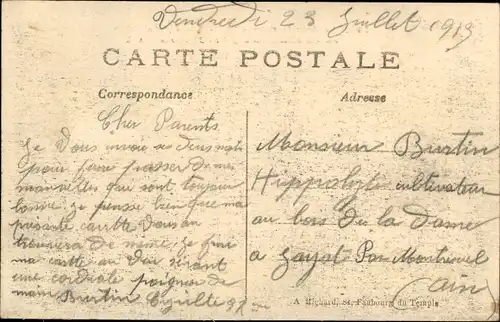 Vendredi 23 Juillet 1913
CARTE POSTALE
Correspondance
Adresse
Cher Parents
Je vous envoie ses deux mots
pour faire passer de mes
nouvelles qui sont toujour
bonne. je pense bien que ma
présente cartte vous en
trouvera de même. je fini
ma cartte au vous serant
une cordiale poignée de
main Burtin
Monsieur Burtin
Hippolyte cultivateur
au bois de la Dame
a Jayat Par Montrevel
Ain
A Richard, 84, Faubourg du Temple